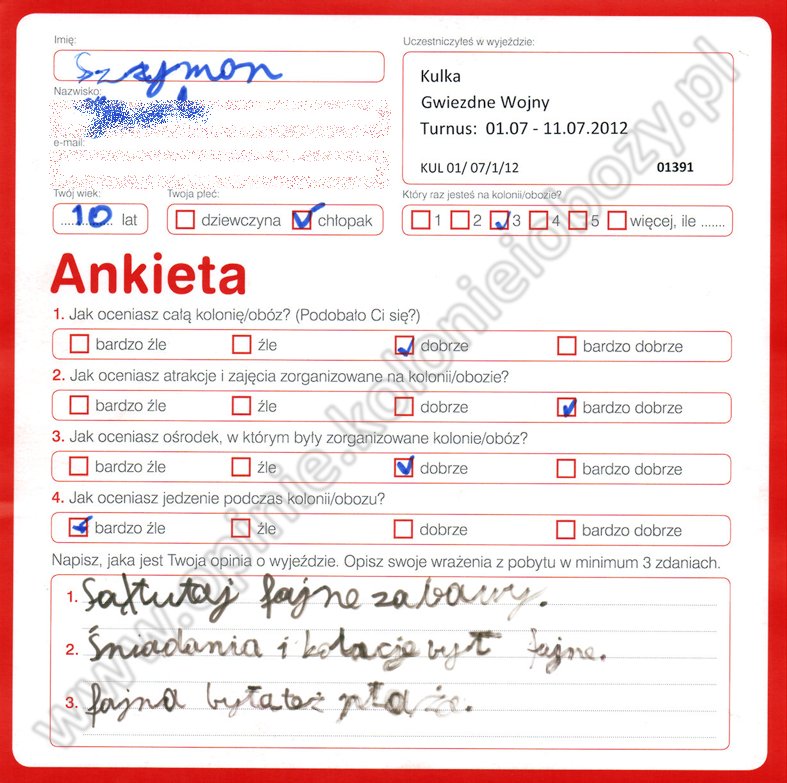 Imię:
Szymon
Uczestniczyłeś w wyjeździe:
Kulka
Gwiezdne Wojny
Turnus: 01.07 - 11.07.2012
KUL 01/ 07/1/12 01391
Nazwisko:
e-mail:
Twój wiek:
10 lat
Twoja płeć:
dziewczyna chłopak
Który raz jesteś na kolonii/obozie?
1 2 3 4 5 więcej, ile .......
Ankieta
1. Jak oceniasz całą kolonię/obóz? (Podobało Ci się?)
bardzo źle źle dobrze bardzo dobrze
2. Jak oceniasz atrakcje i zajęcia zorganizowane na kolonii/obozie?
bardzo źle źle dobrze bardzo dobrze
3. Jak oceniasz ośrodek, w którym były zorganizowane kolonie/obóz?
bardzo źle źle dobrze bardzo dobrze
4. Jak oceniasz jedzenie podczas kolonii/obozu?
bardzo źle źle dobrze bardzo dobrze
Napisz, jaka jest Twoja opinia o wyjeździe. Opisz swoje wrażenia z pobytu w minimum 3 zdaniach.
1. Są tutaj fajne zabawy.
2. Śniadania i kolacje był fajne.
3. fajna była też plaża.
www.opinie.kolonieiobozy.pl